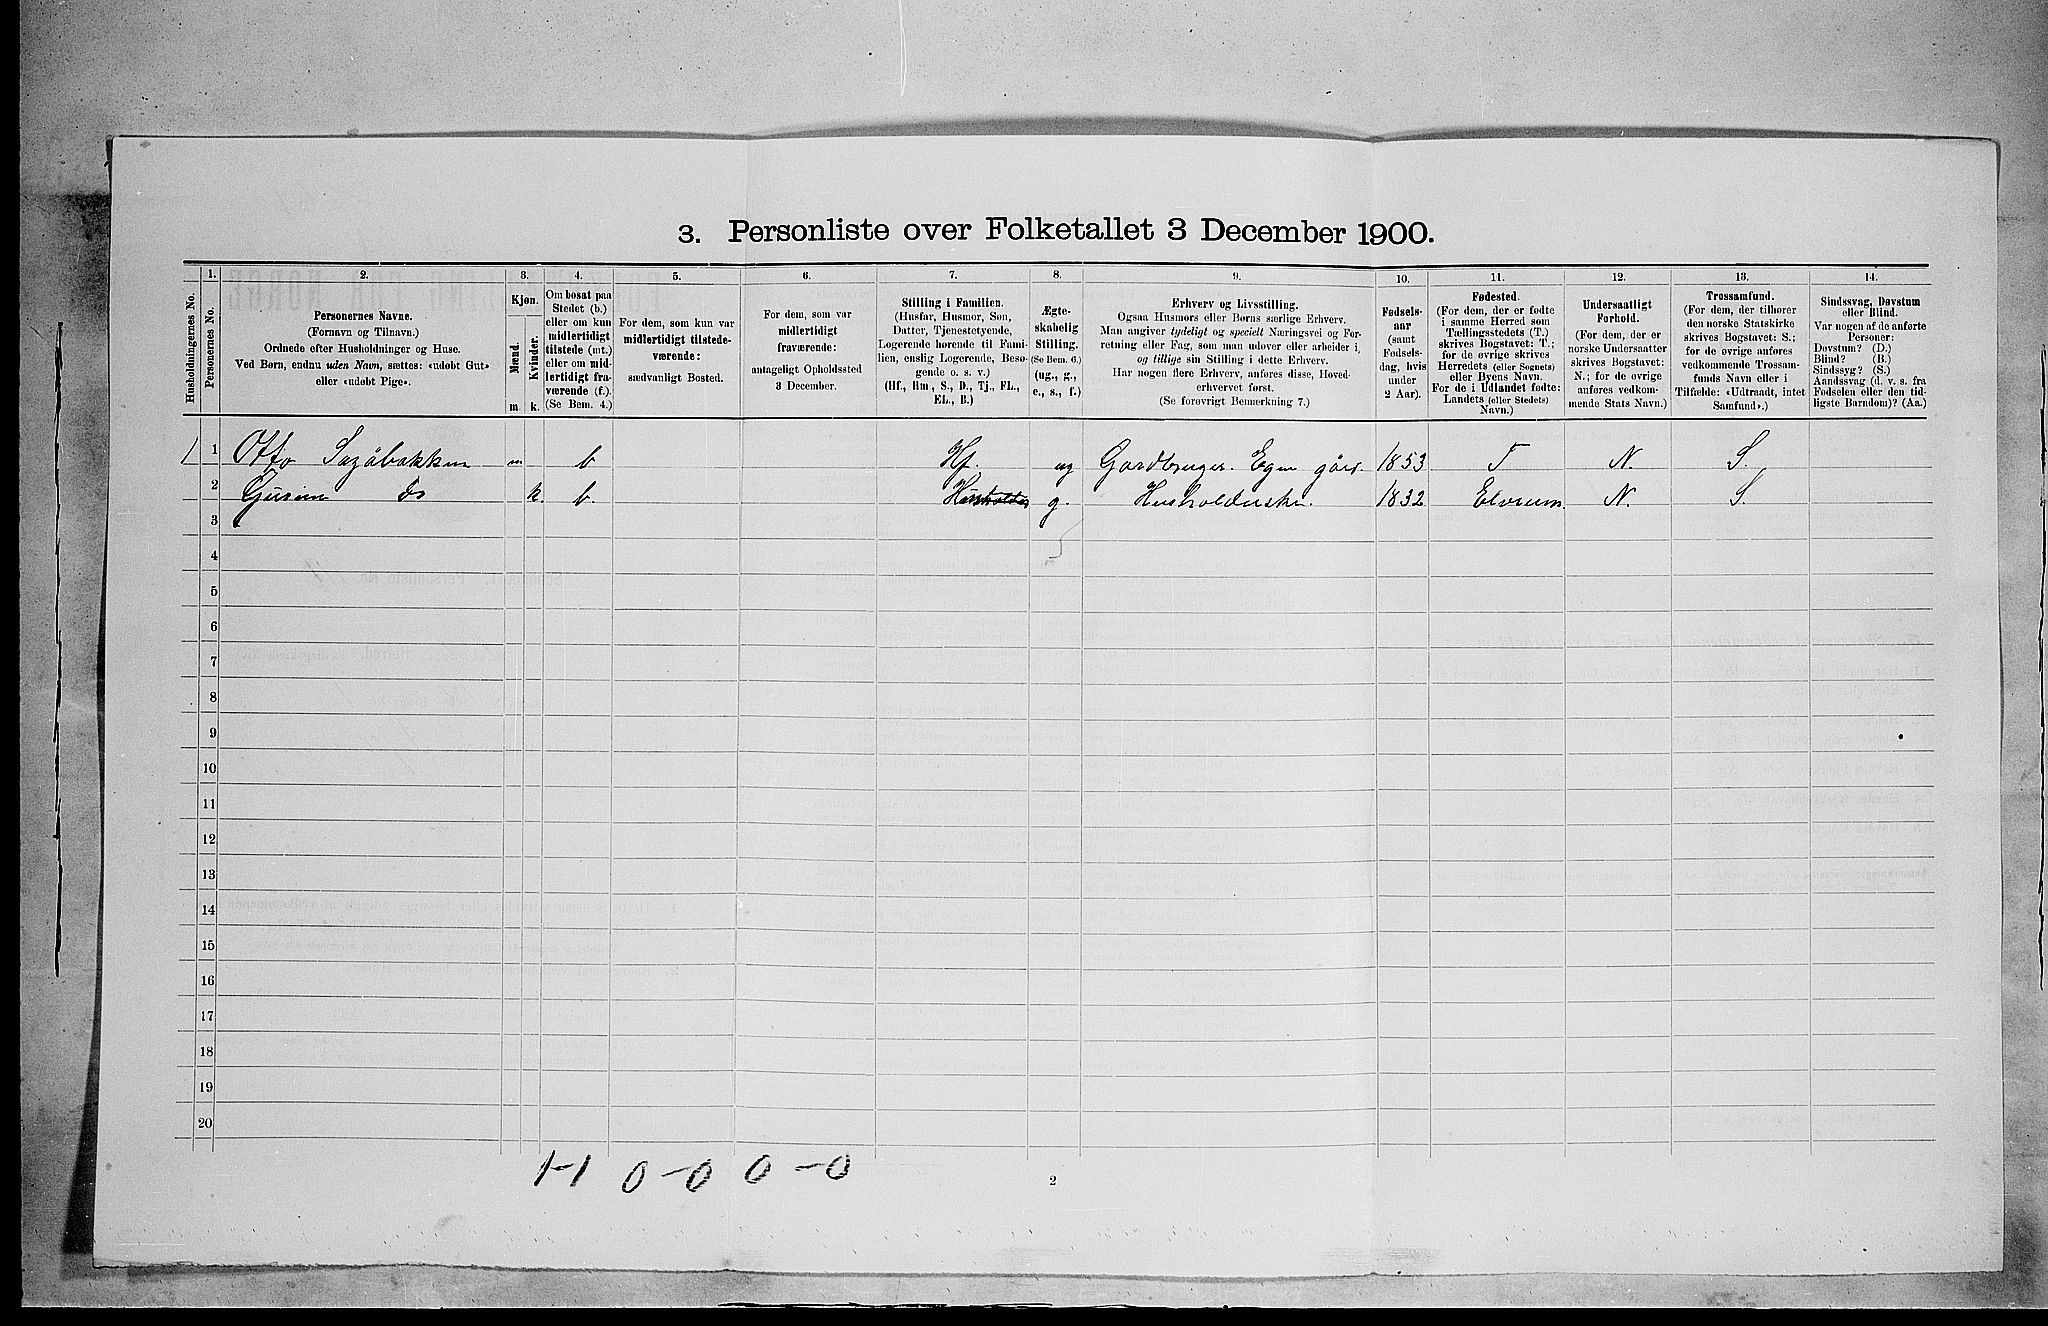 3. Personliste over Folketallet 3 December 1900.
1. 2. 3. 4. 5. 6. 7. 8. 9. 10. 11. 12. 13. 14.
Husholdningernes No.
Personernes No.
Personernes Navne.
(Fornavn og Tilnavn.)
Ordnede efter Husholdninger og Huse.
Ved Børn, endnu uden Navn, sættes: «udobt Gut»
eller «udobt Pige».
Kjøn.
Mænd.
Kvinder.
m. k.
Om bosat paa
Stedet (b.)
eller om kun
midlertidigt
tilstede (mt.)
eller om mid-
lertidigt fra-
værende (f.).
(Se Bem. 4.)
For dem, som kun var
midlertidigt tilstede-
værende:
sædvanligt Bosted.
For dem, som var
midlertidigt
fraværende:
antageligt Opholdssted
3 December.
Stilling i Familien.
(Husfar, Husmor, Søn,
Datter, Tjenestetyende,
Logerende hørende til Fami-
lien, enslig Logerende, Besø-
gende o. s. v.)
(Hf., Hm., S., D., Tj., FL.,
EL., B.)
Ægte-
skabelig
Stilling.
(Se Bem. 6.)
(ug., g.,
e., s., f.)
Erhverv og Livsstilling.
Ogsaa Husmors eller Børns særlige Erhverv.
Man angiver tydeligt og specielt Næringsvei og For-
retning eller Fag, som man udøver eller arbeider i,
og tillige sin Stilling i dette Erhverv.
Har nogen flere Erhverv, anføres disse, Hoved-
erhvervet først.
(Se forøvrigt Bemærkning 7.)
Fødsels-
aar
(samt
Fødsels-
dag, hvis
under
2 Aar).
Fødested.
(For dem, der er fødte
i samme Herred som
Tællingsstedets (T.)
skrives Bogstavet: T.;
for de øvrige skrives
Herredets (eller Sognets)
eller Byens Navn.
For de i Udlandet fødte:
Landets (eller Stedets)
Navn.)
Undersaatligt
Forhold.
(For dem, der er
norske Undersaatter
skrives Bogstavet:
N.; for de øvrige
anføres vedkom-
mende Stats Navn.)
Trossamfund.
(For dem, der tilhører
den norske Statskirke
skrives Bogstavet: S.;
for de øvrige anføres
vedkommende Trossam-
funds Navn eller i
Tilfælde: «Udtraadt, intet
Samfund».)
Sindssvag, Døvstum
eller Blind.
Var nogen af de anførte
Personer:
Døvstum? (D.)
Blind? (B.)
Sindssyg? (S.)
Aandssvag (d. v. s. fra
Fødselen eller den tid-
ligste Barndom)? (Aa.)
1 1 Otto Sagåbakken m b Hf. ug Gardbruger. Egen gård. 1853 T N. S.
2 do k. b. g. Husholderske. 1832 Elvrum. N. S.
3
4
5
6
7
8
9
10
11
12
13
14
15
16
17
18
19
20
1-1 0-0 0-0
2